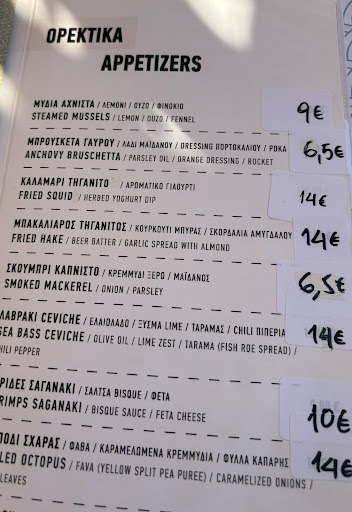 ΟΡΕΚΤΙΚΑ
APPETIZERS
ΜΥΔΙΑ ΑΧΝΙΣΤΑ / ΛΕΜΟΝΙ / ΟΥΖΟ / ΦΙΝΟΚΙΟ
STEAMED MUSSELS / LEMON / OUZO / FENNEL
9€
ΜΠΡΟΥΣΚΕΤΑ ΓΑΥΡΟΥ / ΛΑΔΙ ΜΑΪΔΑΝΟΥ / DRESSING ΠΟΡΤΟΚΑΛΙΟΥ / ΡΟΚΑ
ANCHOVY BRUSCHETTA / PARSLEY OIL / ORANGE DRESSING / ROCKET
6,5€
ΚΑΛΑΜΑΡΙ ΤΗΓΑΝΙΤΟ / ΑΡΩΜΑΤΙΚΟ ΓΙΑΟΥΡΤΙ
FRIED SQUID / HERBED YOGHURT DIP
14€
ΜΠΑΚΑΛΙΑΡΟΣ ΤΗΓΑΝΙΤΟΣ / ΚΟΥΡΚΟΥΤΙ ΜΠΥΡΑΣ / ΣΚΟΡΔΑΛΙΑ ΑΜΥΓΔΑΛΟΥ
FRIED HAKE / BEER BATTER / GARLIC SPREAD WITH ALMOND
14€
ΣΚΟΥΜΠΡΙ ΚΑΠΝΙΣΤΟ / ΚΡΕΜΜΥΔΙ ΞΕΡΟ / ΜΑΪΔΑΝΟΣ
SMOKED MACKEREL / ONION / PARSLEY
6,5€
ΛΑΒΡΑΚΙ CEVICHE / ΕΛΑΙΟΛΑΔΟ / ΞΥΣΜΑ LIME / ΤΑΡΑΜΑΣ / CHILI ΠΙΠΕΡΙΑ
SEA BASS CEVICHE / OLIVE OIL / LIME ZEST / TARAMA (FISH ROE SPREAD) /
CHILI PEPPER
14€
ΡΙΔΕΣ ΣΑΓΑΝΑΚΙ / ΣΑΛΤΣΑ BISQUE / ΦΕΤΑ
RIMPS SAGANAKI / BISQUE SAUCE / FETA CHEESE
10€
ΠΟΔΙ ΣΧΑΡΑΣ / ΦΑΒΑ / ΚΑΡΑΜΕΛΩΜΕΝΑ ΚΡΕΜΜΥΔΙΑ / ΦΥΛΛΑ ΚΑΠΑΡΗΣ
LED OCTOPUS / FAVA (YELLOW SPLIT PEA PUREE) / CARAMELIZED ONIONS /
LEAVES
14€